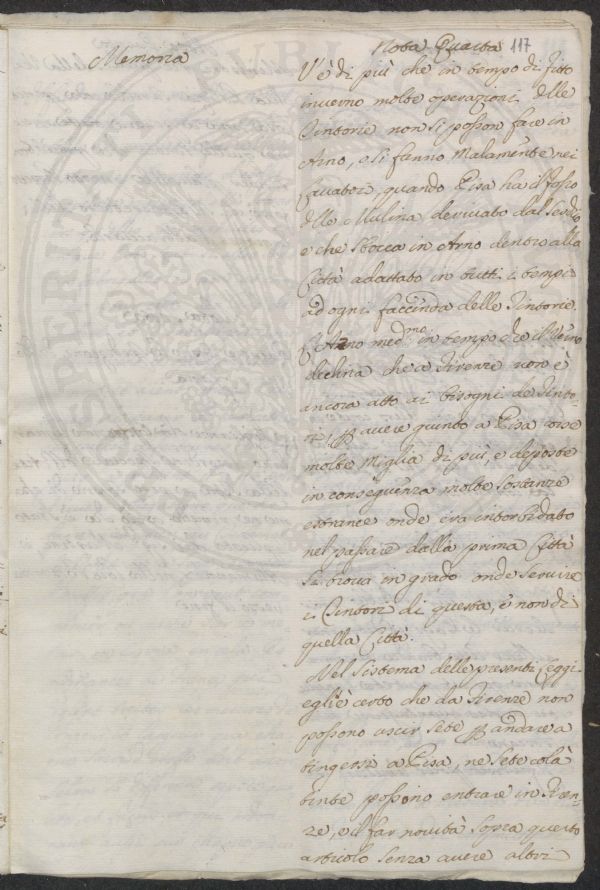 Memoria
Nota Quarta 117
V'è di più che in tempo di fitto
inverno molte operazioni delle
Tintorie non si posson fare in
Arno, e si fanno malamente nei
Cavatori, quando Pisa ha il fosso
delle Mulina derivato dal Serchio
e che sbocca in Arno dentro alla
Città adattato in tutti i tempi
ad ogni faccenda delle Tintorie.
L'Arno med:mo in tempo che il
declina che a Firenze non è
ancora atto ai bisogni de Tinto-
ri, avere quindi a Pisa corse
molte miglia di più, e deposte
in conseguenza molte sostanze
estranee onde era intorbidato
nel passare dalla prima Città
si trova in grado onde servire
i Tintori di questa, e non di
quella Città.
Nel sistema delle presenti Leggi
egli è certo che da Firenze non
possono uscir sete andare a
tingersi a Pisa, ne sete colà
tinte possono entrare in Firen-
ze, e il far novità sopra questo
articolo senza avere altri